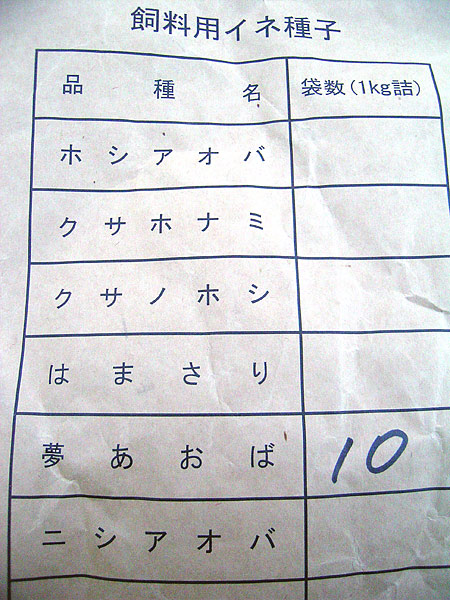 飼料用イネ種子
品種名 袋数(1kg詰)
ホシアオバ
クサホナミ
クサノホシ
はまさり
夢あおば 10
ニシアオバ